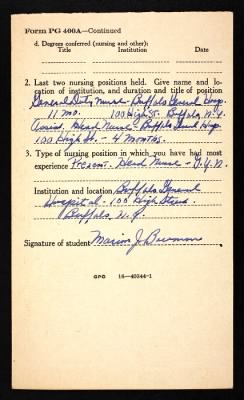 Form PG 400A—Continued
d. Degrees conferred (nursing and other):
Title Institution Date
2. Last two nursing positions held. Give name and lo-
cation of institution, and duration and title of position
General Duty Nurse - Buffalo General Hosp.
11 mo. 100 High St. Buffalo, N.Y.
Assist. Head Nurse - Buffalo Genl Hosp
100 High St. - 4 months.
3. Type of nursing position in which you have had most
experience Present. Head Nurse -
Institution and location Buffalo General
Hospital - 100 High Street
Buffalo, N.Y.
Signature of student Marion J. Bowman
GPO 16—40344-1